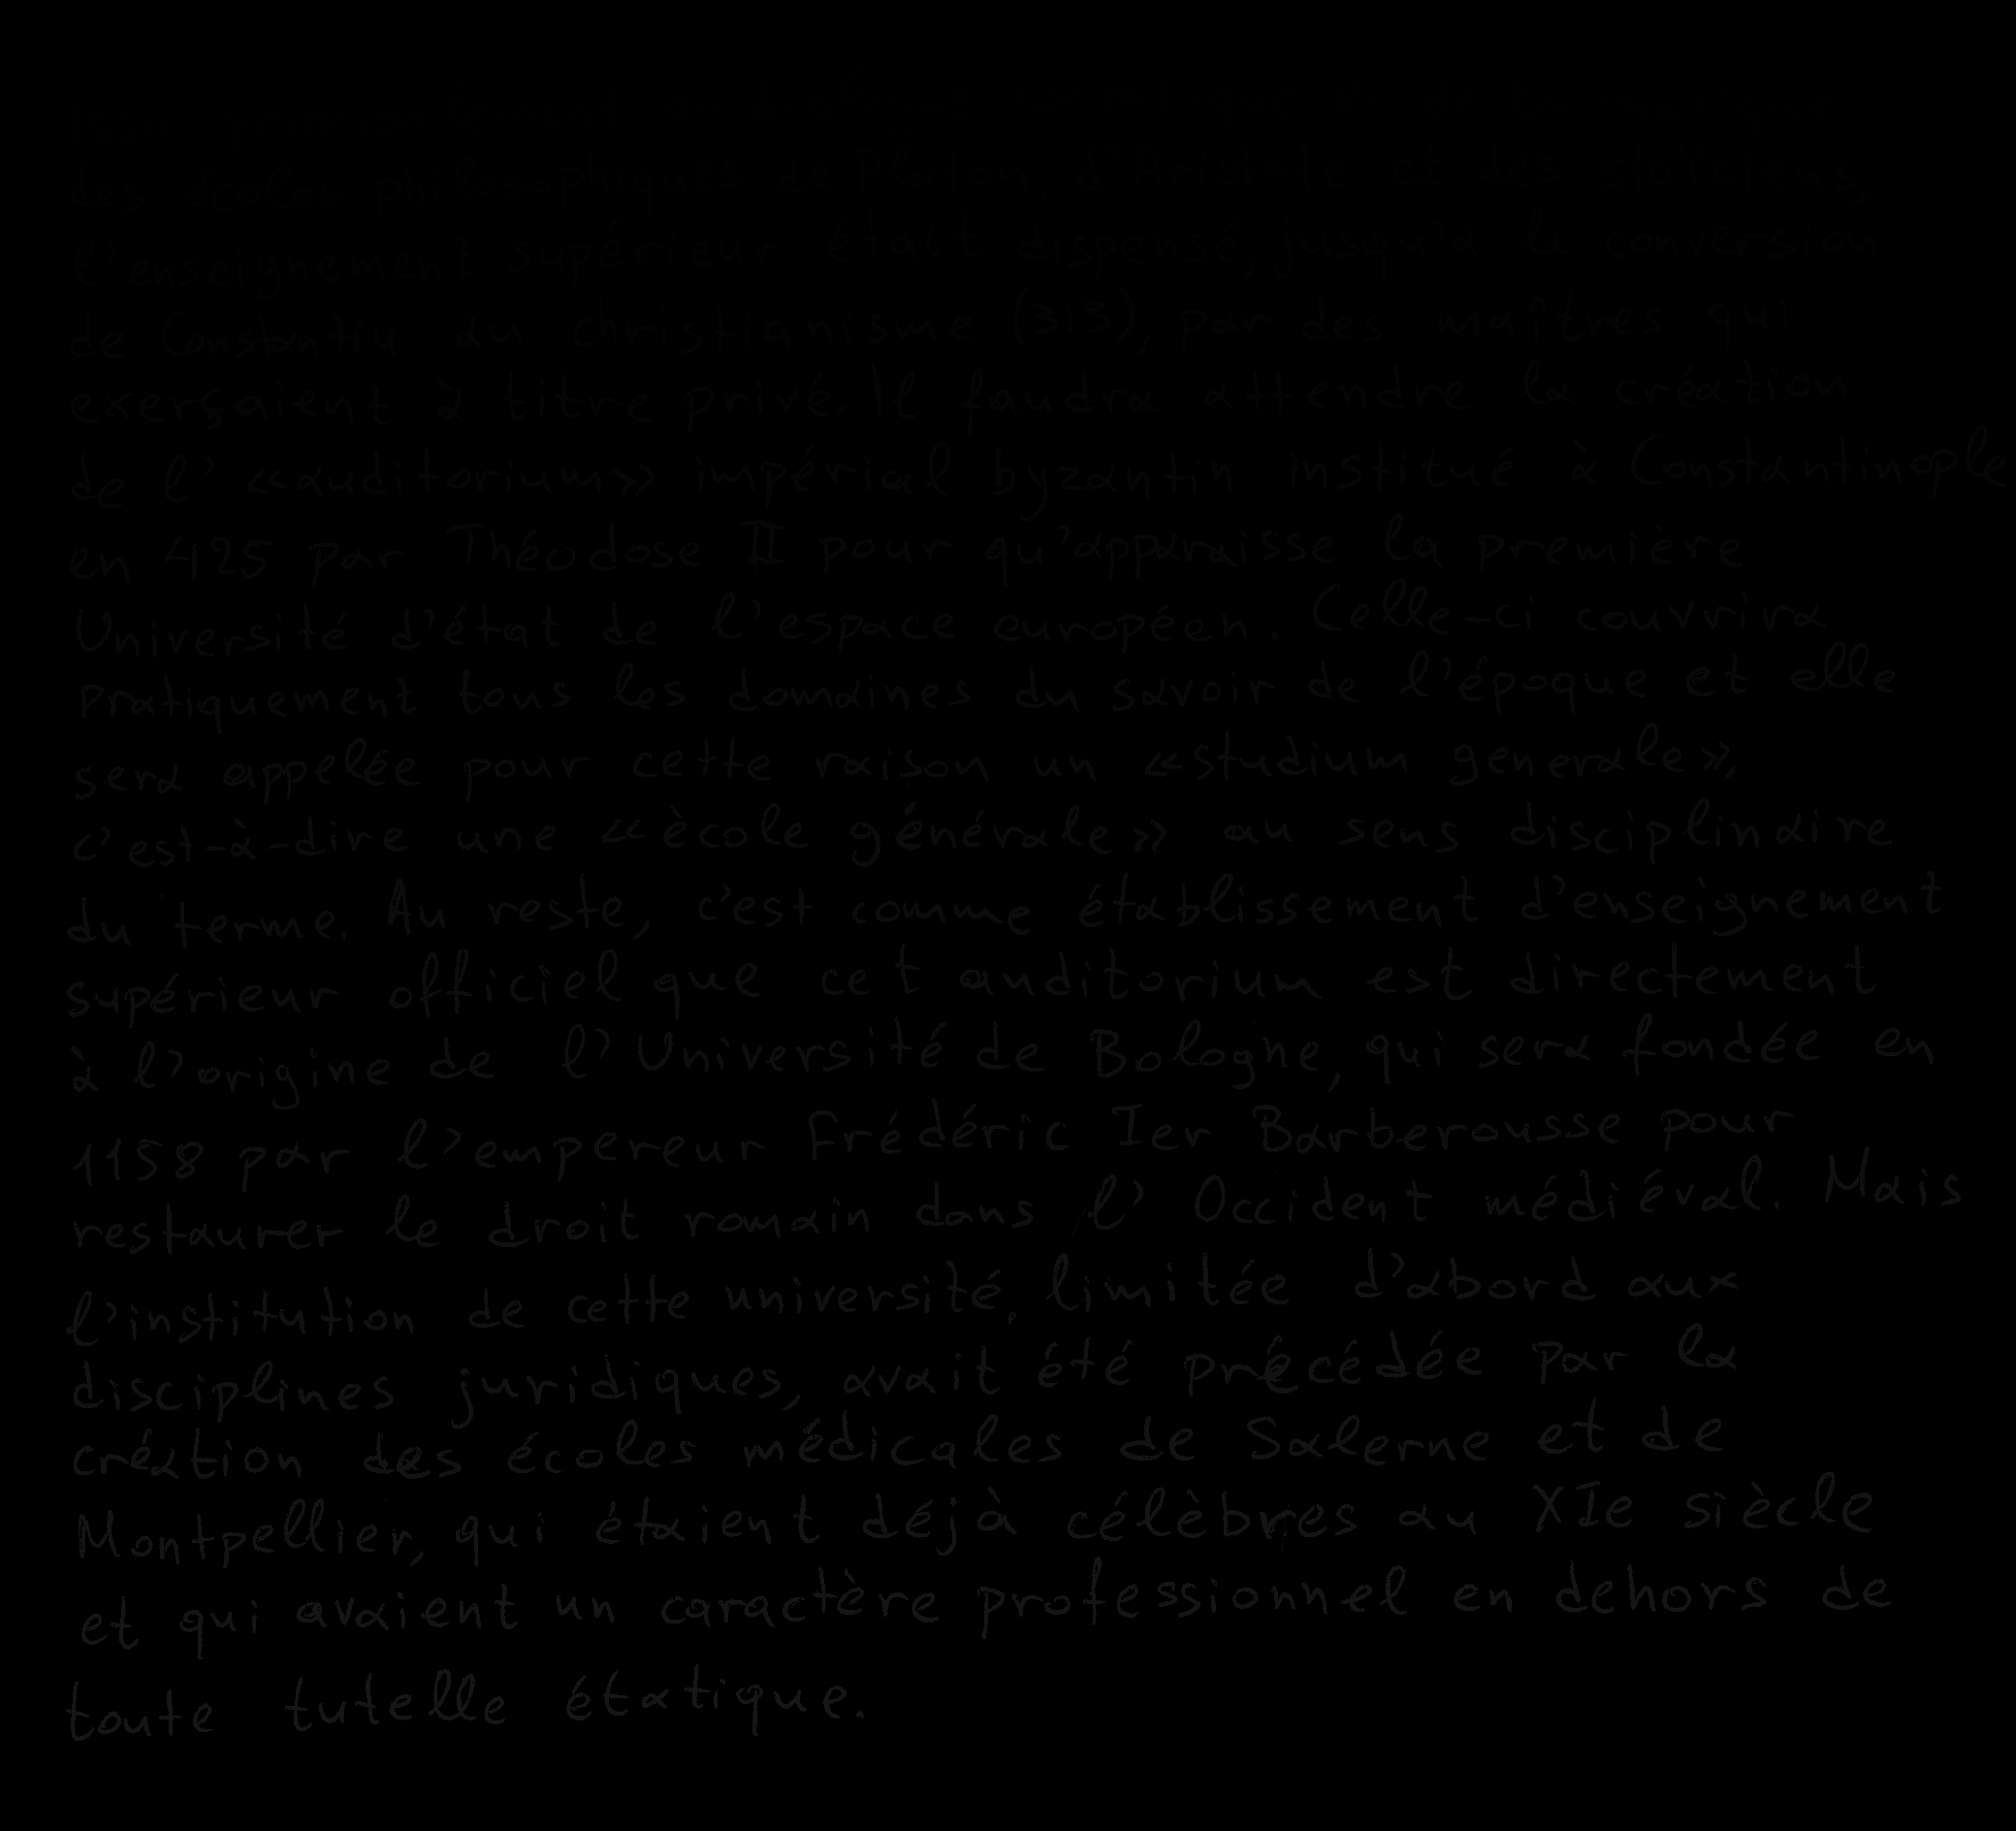 des écoles philosophiques de Platon, d'Aristote et des stoïciens,
l'enseignement supérieur était dispensé, jusqu'à la conversion
de Constantin au christianisme (313), par des maîtres qui
exerçaient à titre privé. Il faudra attendre la création
de l' «auditorium» impérial byzantin institué à Constantinople
en 425 par Théodose II pour qu'apparaisse la première
Université d'état de l'espace européen. Celle-ci couvrira
pratiquement tous les domaines du savoir de l'époque et elle
sera appelée pour cette raison un «studium generale»,
c'est-à-dire une «ècole générale» au sens disciplinaire
du terme. Au reste, c'est comme établissement d'enseignement
supérieur officiel que cet auditorium est directement
à l'origine de l'Université de Bologne, qui sera fondée en
1158 par l'empereur Frédéric Ier Barberousse pour
restaurer le droit romain dans l' Occident médiéval. Mais
l'institution de cette université, limitée d'abord aux
disciplines juridiques, avait été précédée par la
création des écoles médicales de Salerne et de
Montpellier, qui étaient déjà célèbres au XIe siècle
et qui avaient un caractère professionnel en dehors de
toute tutelle étatique.